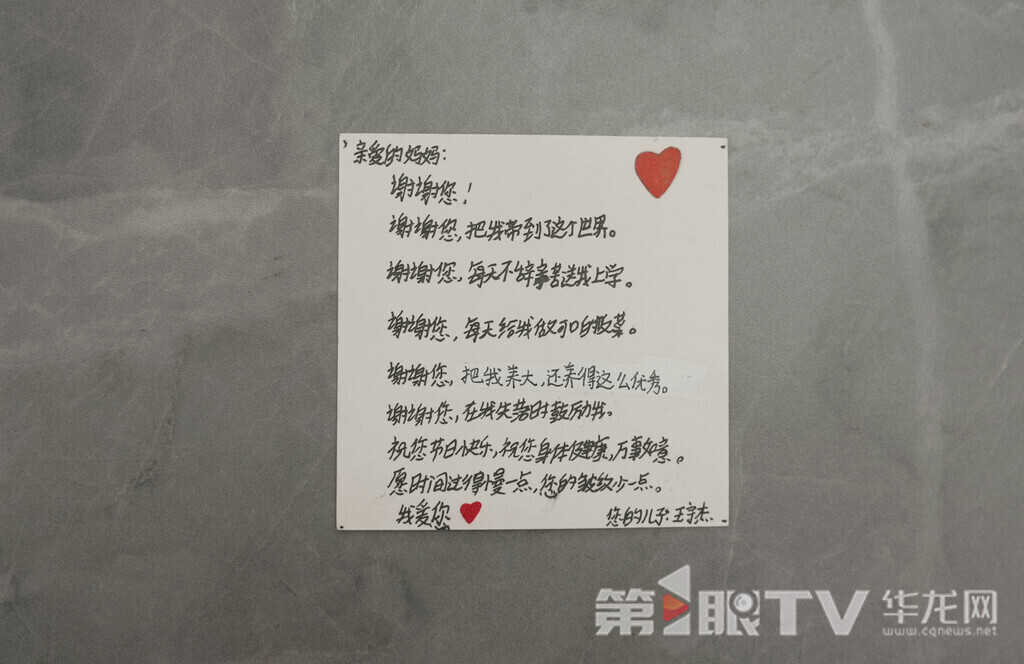 亲爱的妈妈:
谢谢您!
谢谢您,把我带到了这个世界。
谢谢您,每天不辞辛苦送我上学。
谢谢您,每天给我做可口的饭菜。
谢谢您,把我养大,还养得这么优秀。
谢谢您,在我失落时鼓励我。
祝您节日快乐,祝您身体健康,万事如意。
愿时间过得慢一点,您的皱纹少一点。
我爱你
您的儿子:王宇杰
第1眼TV
华龙网
www.cqnews.net